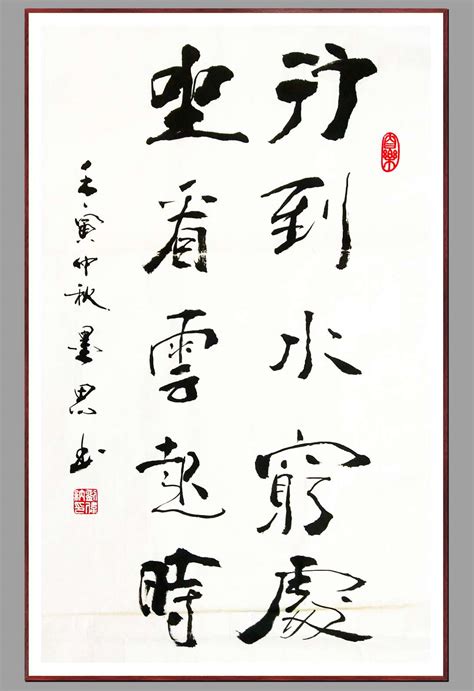 行到水窮處
坐看雲起時
壬寅仲秋墨思书